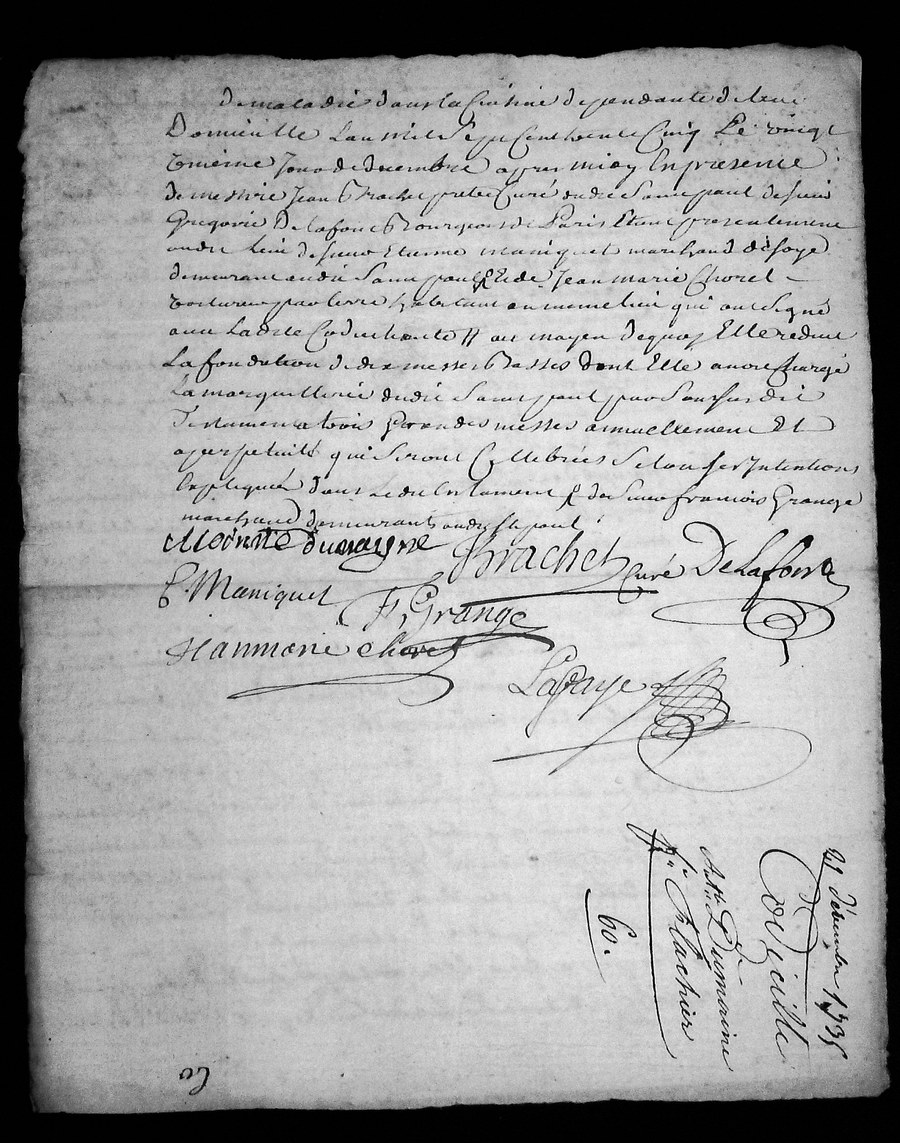 de maladie dans la Cuisine dependante de leur
Domicille Lan mil Sept Cent trente Cinq Le vingt
unième Jour de decembre apres midy En presence
de messire Jean Brachet pretre Curé dudit Saint paul de Sieur
Gregoire De Lafont Bourgeois de Paris Etant presentement
audit lieu de Sieur Etienne Maniquet marchand de soye
demurant audit Saint paul Et de Jean Marie Chorel
voiturier par terre habitant au meme lieu qui ont signé
avec Ladite Codicillante // au moyen de quoy Elle reduit
La fondation de dix messes Basses dont Elle a Chargé
La marguillerie dudit Saint paul par Son susdit
Testament a trois Grandes messes annuellement Et
a perpetuité qui Seront Cellebrées Selon ses Intentions
Expliquées dans Ledit testament & de Sieur francois Grange
marchand demurant audit St paul
dumayne JBrachet Curé De Lafont
E Maniquet F. Grange
Jeanmarie Chorel
Lafaye
21 décembre 1735
Codicille
de
Dumoine
Flachier
60.